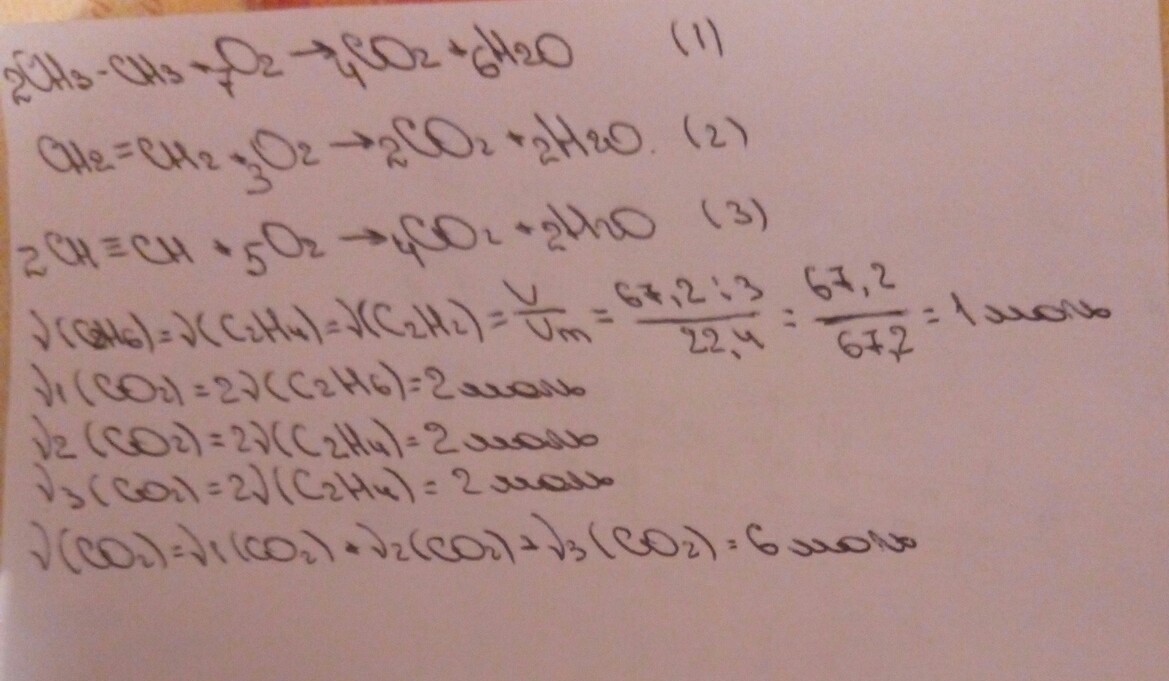 2CH3-CH3 + 7O2 → 4CO2 + 6H2O (1)
CH2=CH2 + 3O2 → 2CO2 + 2H2O. (2)
2CH≡CH + 5O2 → 4CO2 + 2H2O (3)
√(C2H6)=√(C2H4)=√(C2H2)= V/Vm = 67,2:3/22,4 = 67,2/67,2 = 1 моль
√1(CO2)=2√(C2H6)=2 моль
√2(CO2)=2√(C2H4)=2 моль
√3(CO2)=2√(C2H4)=2 моль
√(CO2)=√1(CO2)+√2(CO2)+√3(CO2)=6 моль